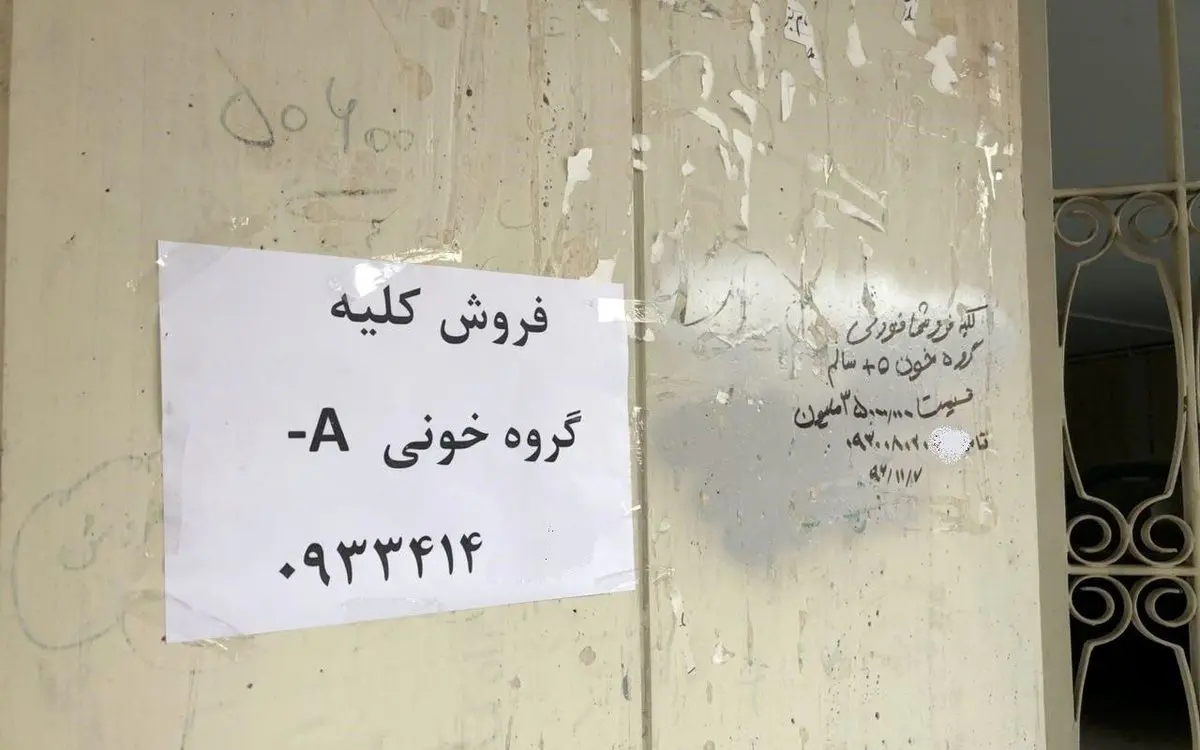 ۵۰۶۰۰
فروش کلیه
گروه خونی A-
۰۹۳۳۴۱۴
کلیه فروشی فوری
گروه خون O+ سالم
قیمت ۳۵۰،۰۰۰،۰۰۰ میلیون
۹۶/۱۱/۷